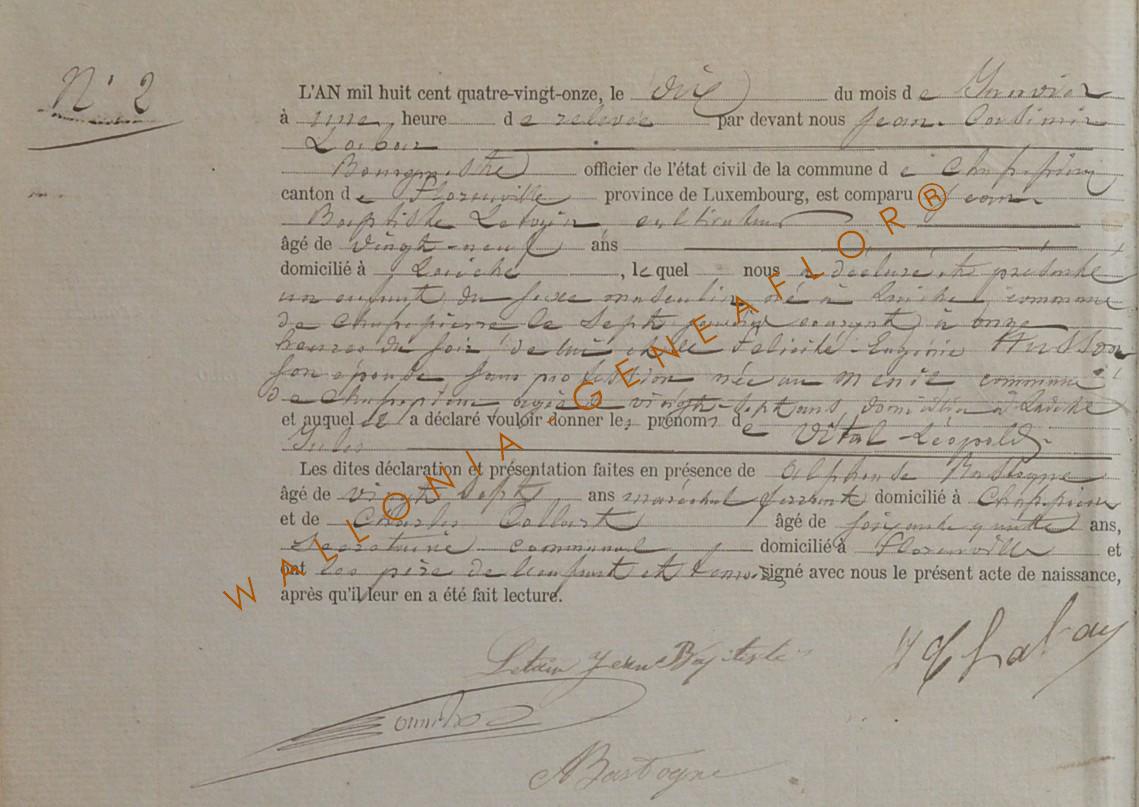 N° 2
L'AN mil huit cent quatre-vingt-onze, le dix du mois de Janvier
à une heure de relevée par devant nous Jean
Bourgmestre officier de l'état civil de la commune de Chassepierre
canton de Florenville province de Luxembourg, est comparu Jean
Baptiste cultivateur
âgé de vingt-neuf ans
domicilié à Laiche, lequel nous a déclaré et présenté
un enfant du sexe masculin né à Laiche commune
de Chassepierre le sept janvier courant à onze
heures du soir de lui et de Félicité Eugénie Husson
son épouse sans profession née au Menil commune
de Chassepierre agée de vingt-sept ans domiciliée à Laiche
et auquel il a déclaré vouloir donner les prénoms de Vital-Léopold-
Jules
Les dites déclaration et présentation faites en présence de Alphonse Bastogne
âgé de vingt sept ans maréchal ferrant domicilié à Chassepierre
et de Charles Collart âgé de soixante quatre ans,
Secrétaire communal domicilié à Florenville et
ont les père de l'enfant et témoins signé avec nous le présent acte de naissance,
après qu'il leur en a été fait lecture.
Jean Baptiste
ABastogne
WALLONIA - GENEAFLOR®